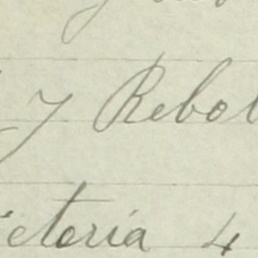 y Rebol
ictoria 4